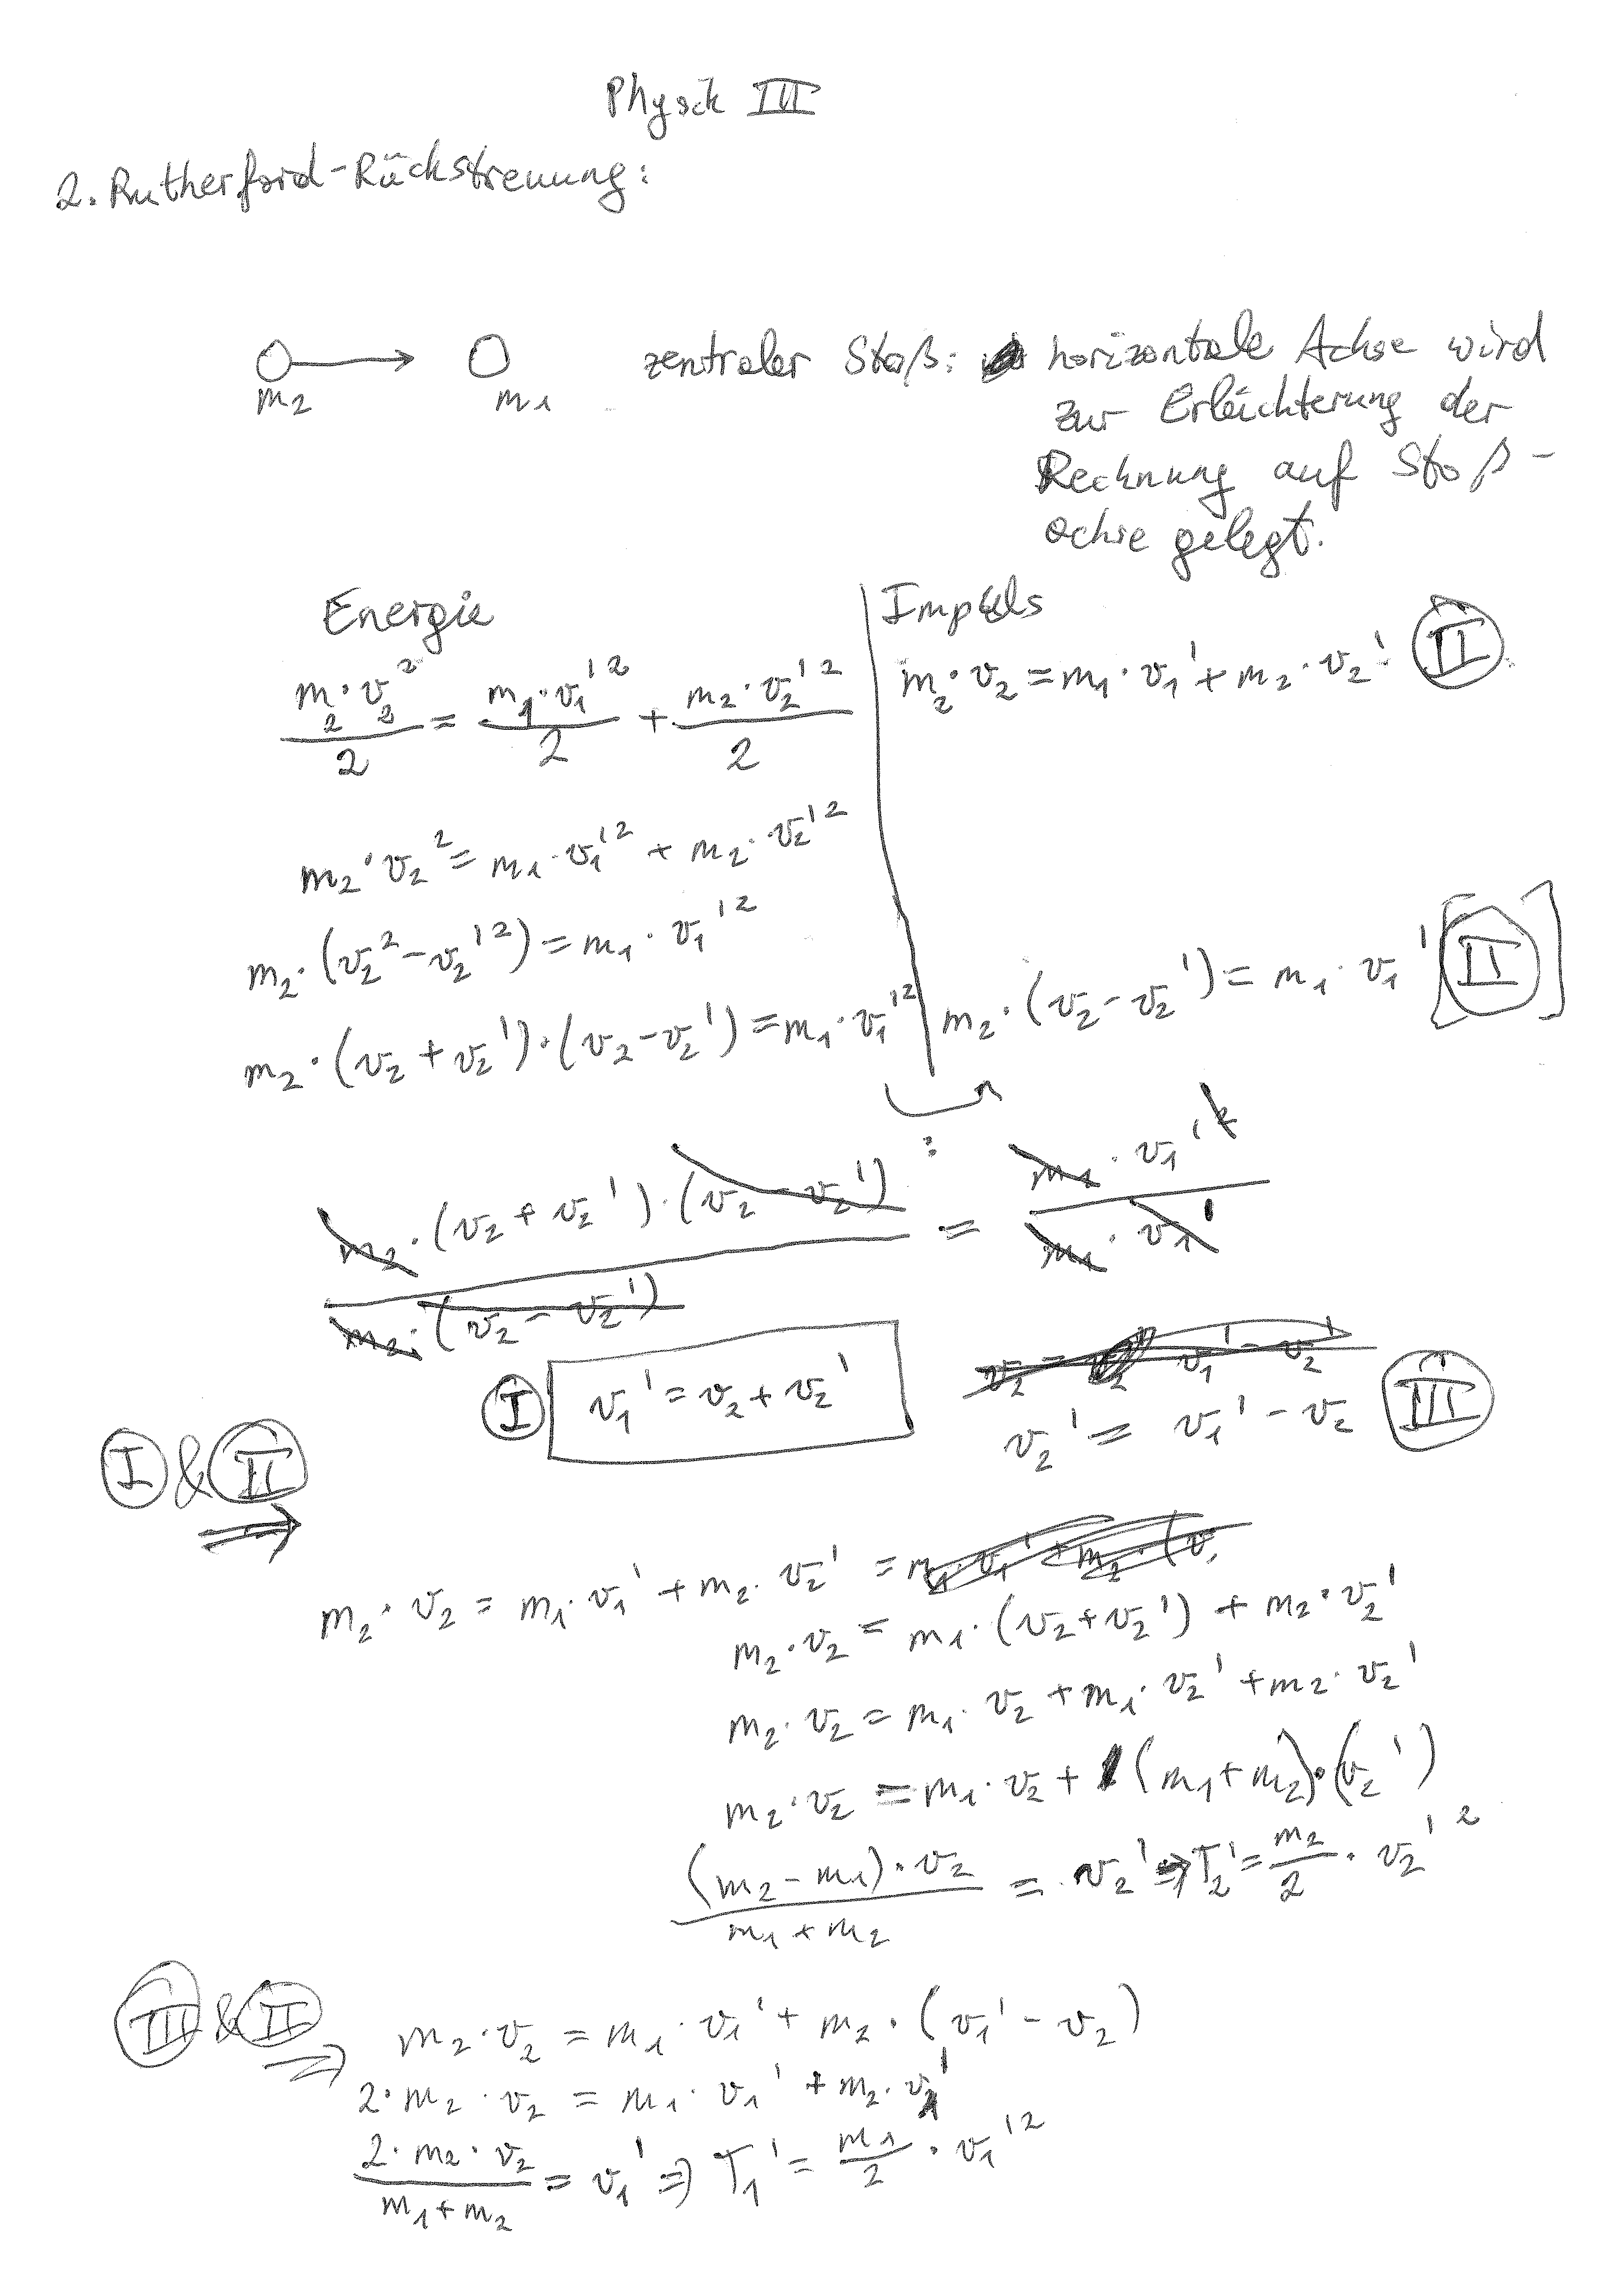 Physik III
2. Rutherford-Rückstreuung:
m₂ m₁ zentraler Stoß: horizontale Achse wird
zur Erleichterung der
Rechnung auf Stoß-
achse gelegt.
Energie Impuls
(m₂·v₂²)/2 = (m₁·v₁'²)/2 + (m₂·v₂'²)/2
m₂·v₂ = m₁·v₁' + m₂·v₂' II
m₂·v₂² = m₁·v₁'² + m₂·v₂'²
m₂·(v₂² - v₂'²) = m₁·v₁'²
m₂·(v₂ + v₂')·(v₂ - v₂') = m₁·v₁'²
m₂·(v₂ - v₂') = m₁·v₁' [II]
:
(m₂·(v₂ + v₂')·(v₂ - v₂'))/(m₂·(v₂ - v₂')) = (m₁·v₁'²)/(m₁·v₁')
I v₁' = v₂ + v₂'
v₂' = v₁' - v₂ III
I & II ⇒
m₂·v₂ = m₁·v₁' + m₂·v₂' = m₁·v₁' + m₂·(v
m₂·v₂ = m₁·(v₂ + v₂') + m₂·v₂'
m₂·v₂ = m₁·v₂ + m₁·v₂' + m₂·v₂'
m₂·v₂ = m₁·v₂ + (m₁ + m₂)·(v₂')
((m₂ - m₁)·v₂)/(m₁ + m₂) = v₂' ⇒ T₂' = m₂/2 · v₂'²
III & II ⇒ m₂·v₂ = m₁·v₁' + m₂·(v₁' - v₂)
2·m₂·v₂ = m₁·v₁' + m₂·v₁'
(2·m₂·v₂)/(m₁ + m₂) = v₁' ⇒ T₁' = m₁/2 · v₁'²